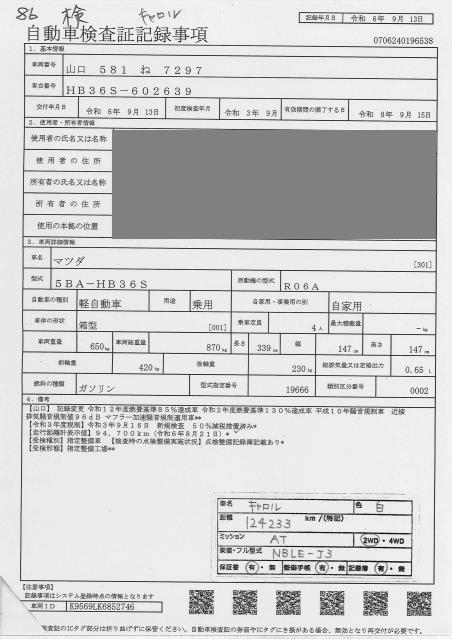 86 検 キャロル
記録年月日 令和 6年 9月 13日
自動車検査証記録事項
0706240196538
1. 基本情報
車両番号 山口 581 ね 7297
車台番号 HB36S-602639
交付年月日 令和 6年 9月 13日 初度検査年月 令和 3年 9月 有効期間の満了する日 令和 8年 9月 15日
2. 使用者・所有者情報
使用者の氏名又は名称
使用者の住所
所有者の氏名又は名称
所有者の住所
使用の本拠の位置
3. 車両詳細情報
車名 マツダ [301]
型式 5BA-HB36S 原動機の型式 R06A
自動車の種別 軽自動車 用途 乗用 自家用・事業用の別 自家用
車体の形状 箱型 [001] 乗車定員 4人 最大積載量 -kg
車両重量 650kg 車両総重量 870kg 長さ 339cm 幅 147cm 高さ 147cm
前軸重 420kg 後軸重 230kg 総排気量又は定格出力 0.65L
燃料の種類 ガソリン 型式指定番号 19666 類別区分番号 0002
4. 備考
【山口】 記録変更 令和12年度燃費基準85%達成車 令和2年度燃費基準130%達成車 平成10年騒音規制車 近接
排気騒音規制値96dB マフラー加速騒音規制適用車**
【令和3年度税制】令和3年9月16日 新規検査 50%減税措置済み*
【走行距離計表示値】94,700km(令和6年8月21日)*
【受検種別】指定整備車 【検査時の点検整備実施状況】点検整備記録簿記載あり*
【受検形態】指定整備工場**
車名 キャロル 色 白
距離 124233 km/(特記)
ミッション AT 2WD・4WD
架装・フル型式 NBLE-J3
保証書 有・無 整備手帳 有・無 記録簿 有・無
【注意事項】
記載事項はシステム登録時点の情報となります
車両ID K9569LK6852746
検査証のICタグ部分は折り曲げずに保管ください。自動車検査証の券面やICタグにき損がある場合、無効となり再交付が必要です。